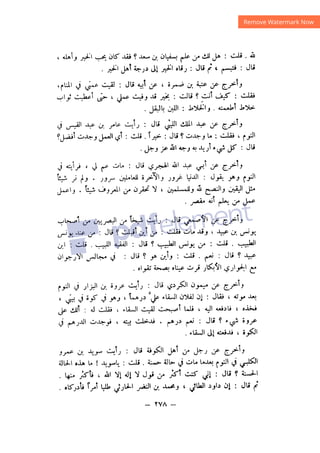 Remove Watermark Now
لله . قلت : هل لك من علم بسفيان بن سعد ؟ فقد كان يحب الخير وأهله ،
قال : فتبسم ، ثم قال : رقاه الخير إلى درجة أهل الخير .
وأخرج عن عتبة بن ضمرة ، عن أبيه قال : لقيت عمتي في المنام،
فقلت : كيف أنت ؟ قالت : بخير قد وفيت عملي ، حتى أعطيت ثواب
خلاط أطعمته . والخلاط : اللبن بالبقل .
وأخرج عن عبد الملك الليثي قال : رأيت عامر بن عبد القيس في
النوم ، فقلت : ما وجدت ؟ قال : خيراً . قلت : أي العمل وجدت أفضل؟
قال : كل شيء أريد به وجه الله عز وجل .
وأخرج عن أبي عبد الله الهجري قال : مات عم لي ، فرأيته في
النوم وهو يقول : الدنيا غرور والآخرة للعاملين سرور . ولم نر شيئاً
مثل اليقين والنصح لله وللمسلمين ، لا تحقرن من المعروف شيئاً . واعمل
عمل من يعلم أنه مقصر .
وأخرج عن الأصمعي قال : رأيت شيخاً من البصريين من أصحاب
يونس بن عبيد ، وقد مات فقلت : من أين أقبلت ؟ قال : من عند يونس
الطبيب . قلت : من يونس الطبيب ؟ قال : الفقيه اللبيب . قلت : ابن
عبيد ؟ قال : نعم . قلت : وأين هو ؟ قال : في مجالس الأرجوان
مع الجواري الأبكار قرت عيناه بصحة تقواه .
وأخرج عن ميمون الكردي قال : رأيت عروة بن البزار في النوم
بعد موته ، فقال : إن لفلان السقاء عليّ درهماً ، وهو في كوة في بيتي ،
فخذه ، فادفعه اليه ، فلما أصبحت لقيت السقاء ، فقلت له : ألك على
عروة شيء ؟ قال : نعم درهم . فدخلت بيته ، فوجدت الدرهم في
الكوة ، فدفعته إلى السقاء .
وأخرج عن رجل من أهل الكوفة قال : رأيت سويد بن عمرو
الكلبي في النوم بعدما مات في حالة حسنة . قلت : ياسويد ! ما هذه الحالة
الحسنة ؟ قال : إني كنت أكثر من قول لا إله إلا الله ، فأكثر منها .
ثم قال : إن داود الطائي ، ومحمد بن النضر الحارثي طلبا أمراً فأدركاه .
— ٢٧٨ —